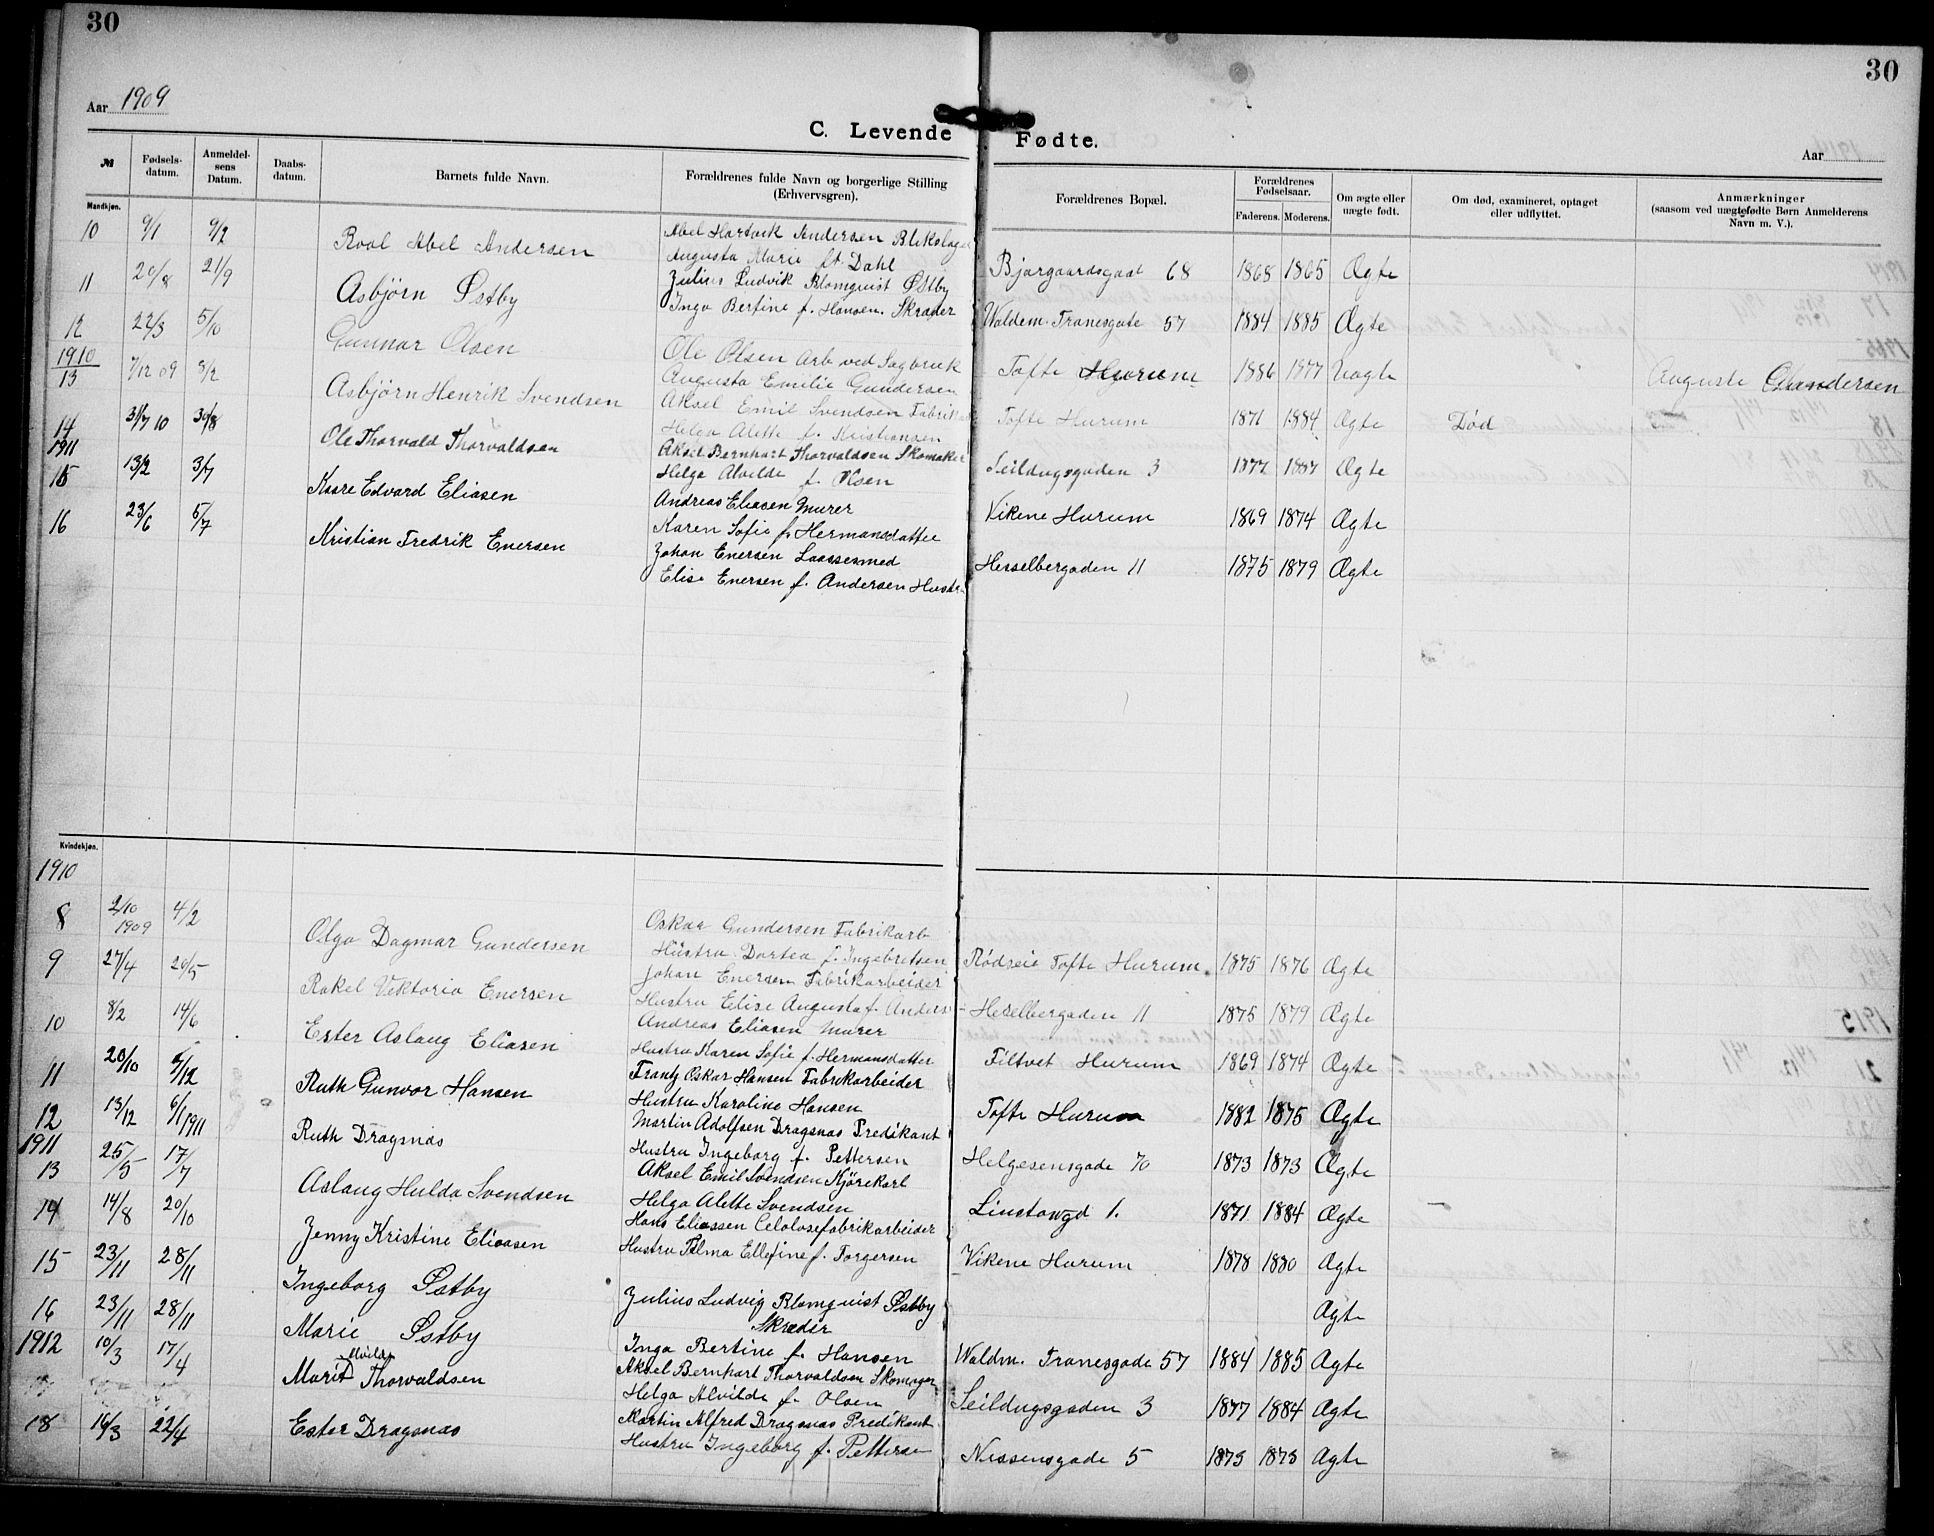 30
30
Aar 1909
C. Levende Fødte.
Aar
№ Fødsels-datum. Anmeldel-sens Datum. Daabs-datum. Barnets fulde Navn. Forældrenes fulde Navn og borgerlige Stilling (Erhvervsgren). Forældrenes Bopæl. Forældrenes Fødselsaar. Faderens. Moderens. Om ægte eller uægte født. Om død, examineret, optaget eller udflyttet. Anmærkninger (saasom ved uægtefødte Børn Anmelderens Navn m. V.).
Mandkjøn.
10 9/1 9/2 Roal Abel Andersen Abel Hartvik Andersen
Augusta Marie f. Dahl Bjørgaardsgaat 68 1868 1865 Ægte
11 20/8 21/9 Asbjörn Østby Julius Ludvik Blomquist Østby
Inga Bertine f. Hansen. Skræder Waldem. Tranesgate 57 1884 1885 Ægte
12 22/3 5/10 Gunnar Olsen Ole Olsen Arb ved Sagbruk
Augusta Emilie Gundersen Tofte Hurum 1886 1877 Uægte Auguste
1910
13 7/12 09 8/2 Asbjörn Henrik Svendsen Aksel Emil Svendsen
Helga Alette f. Kristiansen Tofte Hurum 1871 1884 Ægte Död
14 31/7 10 30/8 Ole Thorvald Thorvaldsen Aksel Bernhart Thorvaldsen Skomaker
Helga Alvilde f. Olsen Seildugsgaden 3 1877 1884 Ægte
1911
15 13/2 3/7 Kaare Edvard Eliasen Andreas Eliasen Murer
Karen Sofie f. Hermansdatter Vikene Hurum 1869 1874 Ægte
16 23/6 5/7 Kristian Fredrik Enersen Johan Enersen Laasesmed
Elise Enersen f. Andersen Hustru Hesselbergaden 11 1875 1879 Ægte
Kvindekjøn.
1910
8 2/10 1909 4/2 Olga Dagmar Gundersen Oskar Gundersen Fabrikarb
Hustru Dortea f. Ingebretsen Rödseie Tofte Hurum. 1875 1876 Ægte
9 27/4 20/5 Rakel Vektoria Enersen Johan Enersen Fabrikarbeider
Hustru Elise Augusta f. Anders Heselbergaden 11 1875 1879 Ægte
10 8/2 14/6 Ester Aslaug Eliasen Andreas Eliasen Murer
Hustru Karen Sofie f. Hermansdatter Filtvet Hurum 1869 1874 Ægte
11 20/10 5/12 Ruth Gunvor Hansen Frantz Oskar Hansen Fabrikarbeider
Hustru Karoline Hansen Tofte Hurum 1882 1875 Ægte
12 13/12 6/1 1911 Ruth Dragsnæs Martin Adolfsen Dragsnas Predikant
Hustru Ingeborg f. Pettersen Helgesensgade 70 1873 1873 Ægte
1911
13 25/5 17/7 Aslaug Hulda Svendsen Aksel Emil Svendsen Kjörekarl
Helga Alette Svendsen Linstowgd 1. 1871 1884 Ægte
14 14/8 20/10 Jenny Kristine Eliasen Hans Eliassen Celolosefabrikarbeider
Hustru Tilma Ellefine f. Torgersen Vikene Hurum 1878 1880 Ægte
15 23/11 28/11 Ingeborg Østby Ægte
16 23/11 28/11 Marie Østby Julius Ludvig Blomquist Østby
Skræder
Inga Bertine f. Hansen Waldm. Tranesgade 57 1884 1885 Ægte
1912
10/3 17/4 Marit Thorvaldsen Aksel Bernhart Thorvaldsen Skomager
Helga Alvilde f. Olsen Seildugsgaden 3 1877 1884 Ægte
18 16/3 22/4 Ester Dragsnæs Martin Alfred Dragsnas Predikant
Hustru Ingeborg f. Petterse Nissensgade 5 1873 1873 Ægte